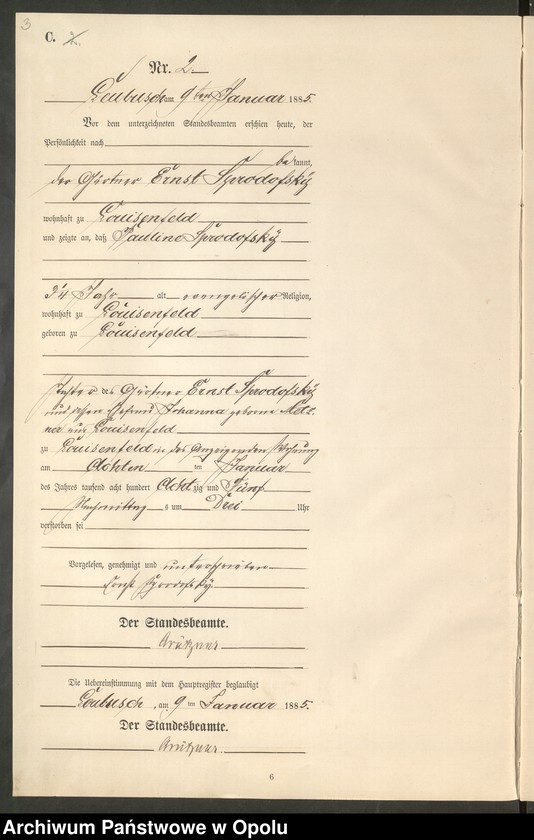 3
C. 2.
Nr. 2.
Leubusch am 9 ten Januar 1885.
Vor dem unterzeichneten Standesbeamten erschien heute, der
Persönlichkeit nach
bekannt,
der Gärtner Ernst Sprodofskÿ
wohnhaft zu Louisenfeld
und zeigte an, daß Pauline Sprodofskÿ
Jahr alt evangelischer Religion,
wohnhaft zu Louisenfeld
geboren zu Louisenfeld
Tochter des Gärtner Ernst Sprodofskÿ
und dessen Ehefrau Johanna geborne
aus Louisenfeld
zu Louisenfeld in des Anzeigenden Wohnung
am Achten ten Januar
des Jahres tausend acht hundert Achtzig und Fünf
Nachmittags um Drei Uhr
verstorben sei
Vorgelesen, genehmigt und unterschrieben
Ernst Sprodofskÿ
Der Standesbeamte.
Die Uebereinstimmung mit dem Hauptregister beglaubigt
Leubusch, am 9 ten Januar 1885.
Der Standesbeamte.
6
Archiwum Państwowe w Opolu